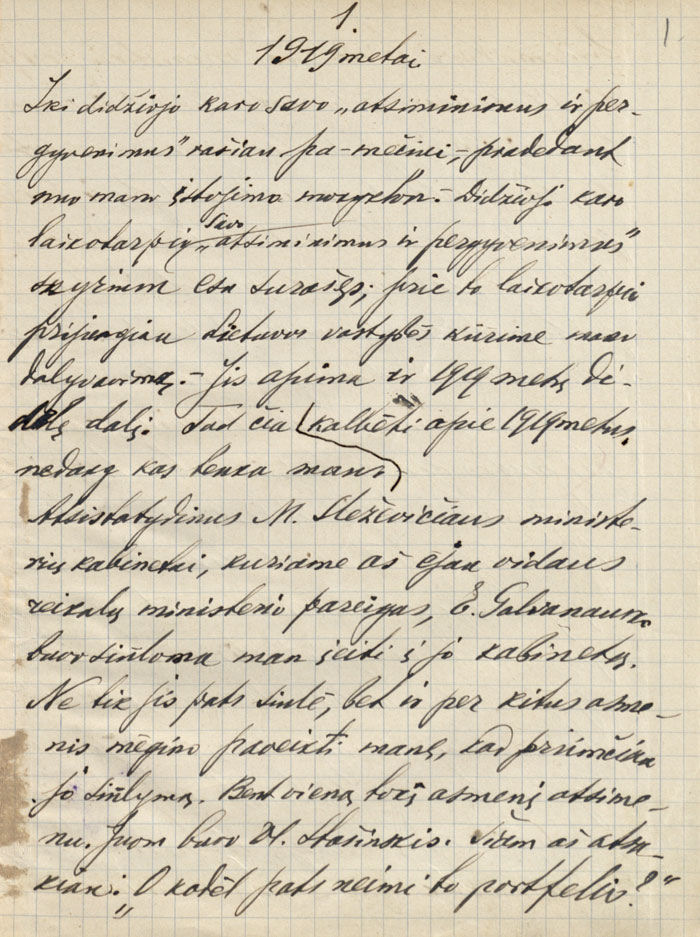 1
1.
1919 metai
Iki didžiojo karo savo „atsiminimus ir per-
gyvenimus" rašiau pa-mečiui, – pradedant
nuo mano įstojimo mokyklon. – Didžiojo karo
laikotarpių savo „atsiminimus ir pergyvenimus"
skyrium esu surašęs; prie to laikotarpio
prijungiau Lietuvos valstybės kūrime mano
dalyvavimą. – Jis apima ir 1919 metų di-
delę dalį. Tad čia kalbėti apie 1919 metus
nedaug kas tenka mano
Atsistatydinus M. Sleževičiaus ministe-
rių kabinetui, kuriame aš ėjau vidaus
reikalų ministerio pareigas, E. Galvanausko
buvo siūloma man įeiti į jo kabinetą.
Ne tik jis pats siūlė, bet ir per kitus asme-
nis mėgino paveikti mane, kad priimčiau
jo siūlymą. Bent vieną tokį asmenį atsime-
nu. Juom buvo Vl. Stašinskis. Jam aš atsa-
kiau: „O kodėl pats neimi to portfelio?"